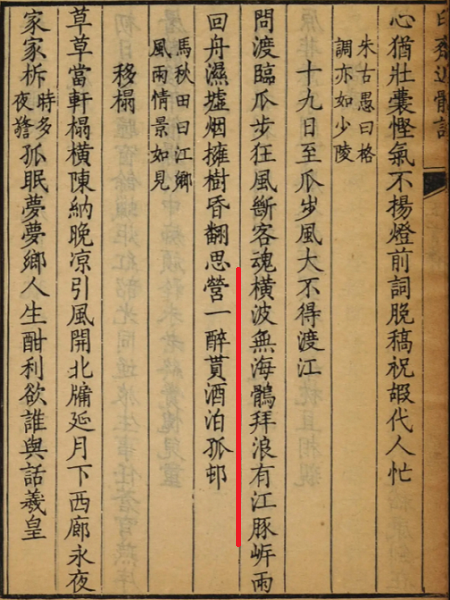 齋近體詩
心猶壯囊慳氣不揚燈前詞脫稿祝嘏代人忙
朱古愚曰格
調亦如少陵
十九日至瓜步風大不得渡江
問渡臨瓜步狂風斷客魂橫波無海鶻拜浪有江豚岸雨
回舟濕墟烟擁樹昏翻思營一醉貰酒泊孤邨
馬秋田曰江鄉
風雨情景如見
移榻
草草當軒榻橫陳納晚凉引風開北牖延月下西廊永夜
家家柝時多夜警孤眠夢夢鄉人生酣利欲誰與話羲皇